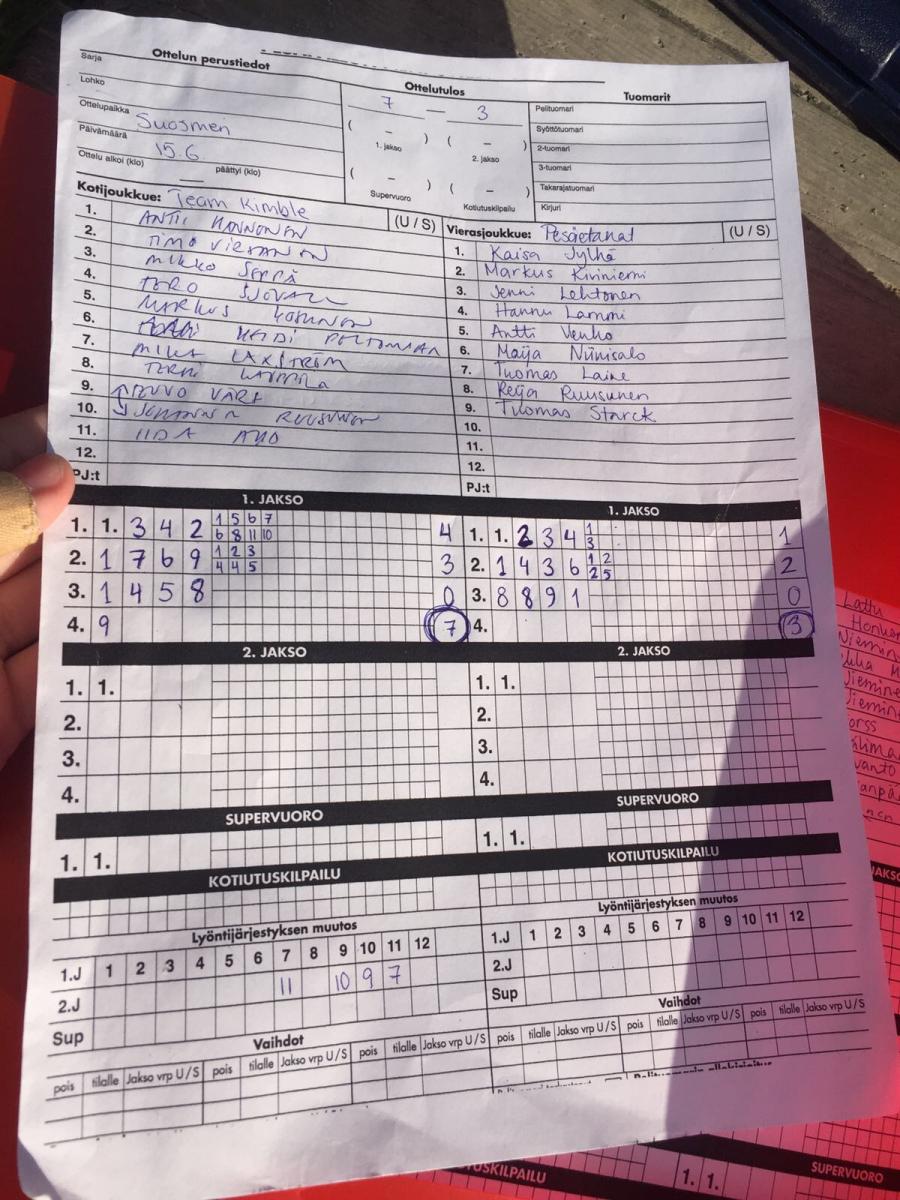 Ottelun perustiedot
Sarja
Lohko
Ottelupaikka Suosmeri
Päivämäärä 15.6
Ottelu alkoi (klo) päättyi (klo)
Ottelutulos
7 — 3
( – ) ( – )
1. jakso 2. jakso
( – ) ( – )
Supervuoro Kotiutuskilpailu
Tuomarit
Pelituomari
Syöttötuomari
2-tuomari
3-tuomari
Takarajatuomari
Kirjuri
Kotijoukkue: Team Kimble (U / S)
1. ANTTI HANNONEN
2. TIMO VIRTANEN
3. MIKKO SEPPÄ
4. TERO SJÖVALL
5. MARKUS
6. HEIDI
7. MIKA LAXSTRÖM
8.
9. VARE
10. JOHANNA RUUSUNEN
11. IIDA AHO
12.
PJ:t
Vierasjoukkue: Pesäetanat (U / S)
1. Kaisa Jylhä
2. Markus Kiviniemi
3. Jenni Lehtonen
4. Hannu Lammi
5. Antti Venho
6. Maija Niinisalo
7. Tuomas Laine
8. Reija Ruusunen
9. Tuomas Starck
10.
11.
12.
PJ:t
1. JAKSO
1. 1. 3 4 2 1 5 6 7 4
6 8 11 10
2. 1 7 6 9 1 2 3 3
4 4 5
3. 1 4 5 8 0
4. 9 7
1. JAKSO
1. 1. 2 3 4 1 1
3
2. 1 4 3 6 1 2 2
2 5
3. 8 8 9 1 0
4. 3
2. JAKSO
1. 1.
2.
3.
4.
2. JAKSO
1. 1.
2.
3.
4.
SUPERVUORO
1. 1.
SUPERVUORO
1. 1.
KOTIUTUSKILPAILU
KOTIUTUSKILPAILU
Lyöntijärjestyksen muutos
1.J 1 2 3 4 5 6 7 8 9 10 11 12
2.J 11 10 9 7
Sup
Lyöntijärjestyksen muutos
1.J 1 2 3 4 5 6 7 8 9 10 11 12
2.J
Sup
Vaihdot
pois tilalle Jakso vrp U / S pois tilalle Jakso vrp U / S pois tilalle Jakso vrp U / S
Vaihdot
pois tilalle Jakso vrp U / S pois tilalle Jakso vrp U / S pois tilalle Jakso vrp U / S
Lattu
JAKSO
1. 1.
SUPERVUORO